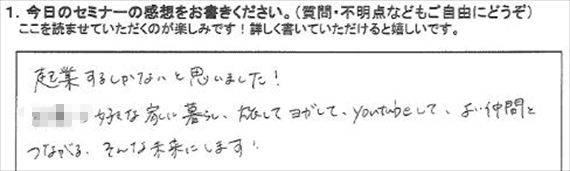 1. 今日のセミナーの感想をお書きください。(質問・不明点などもご自由にどうぞ)
ここを読ませていただくのが楽しみです!詳しく書いていただけると嬉しいです。
起業するしかないと思いました!
好きな家に暮らし、旅してヨガして、youtubeして、よい仲間と
つながる、そんな未来にします!